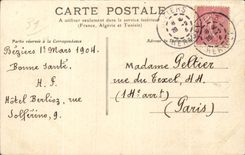 CARTE POSTALE
A utiliser seulement dans le service intérieur
(France, Algérie et Tunisie)
Partie réservée à la Correspondance
Béziers 1r Mars 1904.
Bonne Santé.
H. P.
Hôtel Berlioz, rue
Solférino, 9
Madame Peltier
rue du Texel,
(14e arrt)
(Paris)